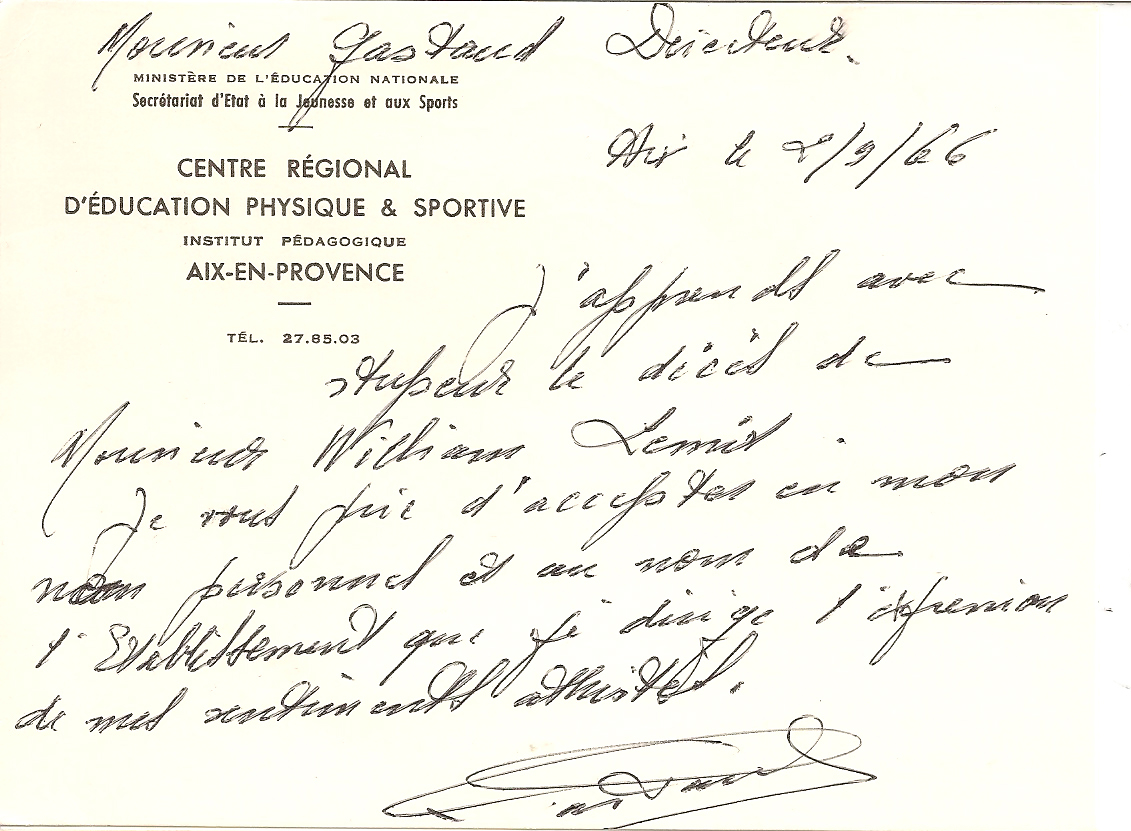 Monsieur Gastaud Directeur.
MINISTÈRE DE L'ÉDUCATION NATIONALE
Secrétariat d'Etat à la Jeunesse et aux Sports
CENTRE RÉGIONAL
D'ÉDUCATION PHYSIQUE & SPORTIVE
INSTITUT PÉDAGOGIQUE
AIX-EN-PROVENCE
TÉL. 27.85.03
Aix le 2/9/66
J'apprends avec
stupeur le décès de
Monsieur William Lemit.
Je vous prie d'accepter en mon
nom personnel et au nom de
l'Etablissement que je dirige l'expression
de mes sentiments attristés.
Gastaud